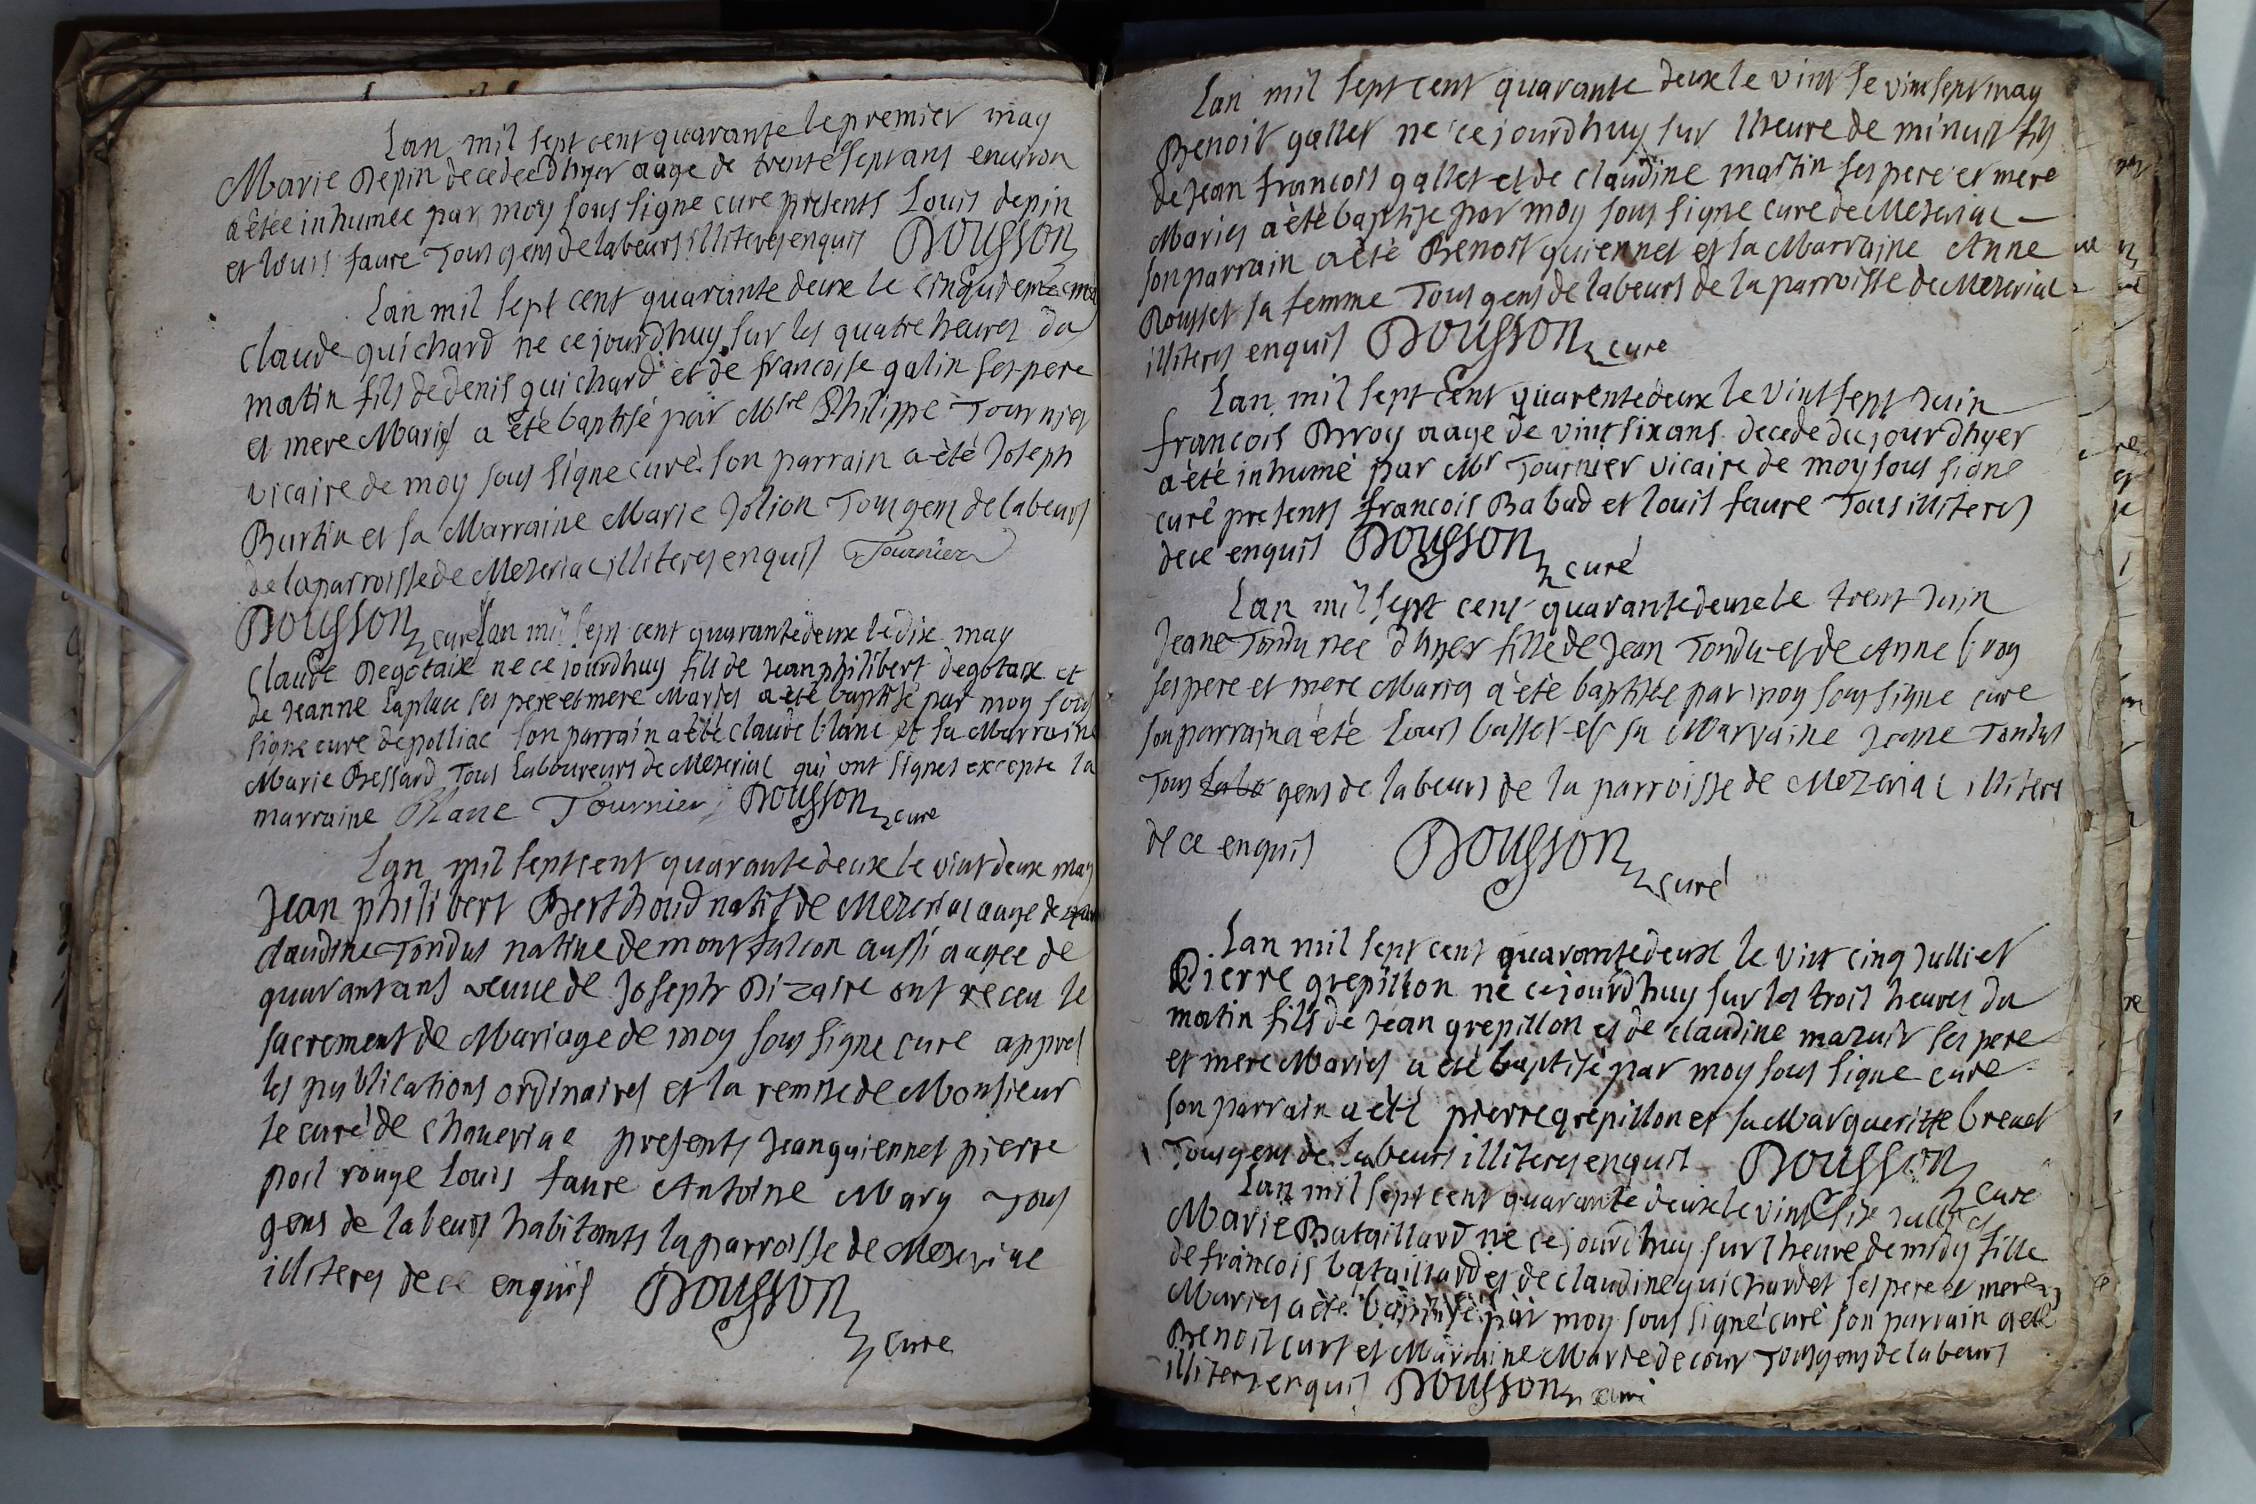 Lan mil sept cent quarante le premier may
Marie Depin decedee dhyer aage de trente sept ans environ
a étée inhumée par moy sous signe cure presents Louis depin
et louis faure Tous gens de labeurs illiteres enquis Dousson
Lan mil sept cent quarante deux le cinquieme may
Claude guichard ne ce jourdhuy sur les quatre heures du
matin fils de denis guichard et de francoise galin ses pere
et mere Mariés a été baptisé par Mire Philippe Tournier
vicaire de moy sous signe curé son parrain a été Joseph
Burtin et sa Marraine Marie Jolion Tous gens de labeurs
de la parroisse de Mezeriac illiteres enquis Tournier
Dousson curé Lan mil sept cent quarante deux le dix may
Claude Degotaix ne ce jourdhuy fils de Jean philibert degotaix et
de Jeanne Laplace ses pere et mere Mariés a été baptisé par moy sous
signe cure de polliac son parrain a été claude blanc et sa Marraine
Marie Bessard Tous Laboureurs de Mezeriac qui ont signes excepte la
marraine Blanc Tournier Dousson cure
Lan mil sept cent quarante deux le vint deux may
Jean philibert Berthoud natif de Mezeriac aage de
claudine Tondus native de montfalcon aussi agee de
quarant ans veuve de Joseph Dizaire ont receu le
sacrement de Mariage de moy sous signe cure appres
les publications ordinaires et la remise de Monsieur
le curé de chaveriac presents Jean guiennet pierre
poil rouge Louis faure Antoine Mary Tous
gens de labeurs habitants la parroisse de Mezeriac
illiteres de ce enquis Dousson
cure
Lan mil sept cent quarante deux le vint le vint sept may
Benoit gallet ne ce jourdhuy sur lheure de minuit fils
de Jean francois gallet et de claudine martin ses pere et mere
Mariés a été baptise par moy sous signe cure de Mezeriac
son parrain a été Benoit guiennet et la Marraine Anne
Rousset sa femme Tous gens de labeurs de la parroisse de Mezeriac
illiteres enquis Dousson cure
Lan mil sept cent quarente deux le vint sept Juin
francois Broy aage de vint six ans decede du jour dhyer
a été inhumé par Mr Tournier vicaire de moy sous signe
curé presents francois Babad et louis faure Tous illiteres
de ce enquis Dousson curé
Lan mil sept cent quarante deux le trent Juin
Jeane Tondu nee dhyer fille de Jean Tondu et de Anne broy
ses pere et mere Mariés a été baptisée par moy sous signe cure
son parrain a été Louis basset et sa Marraine Jeane Tondus
Tous gens de labeurs de la parroisse de Mezeriac illitere
de ce enquis Dousson curé
Lan mil sept cent quarante deux le vint cinq Julliet
Pierre grepillon né ce jourdhuy sur les trois heures du
matin fils de Jean grepillon et de claudine mazuir ses pere
et mere Mariés a été baptisé par moy sous signe cure
son parrain a été pierre grepillon et sa Margueritte
Tous gens de labeurs illiteres enquis Dousson
cure
Lan mil sept cent quarante deux le vint six Julliet
Marie Bataillard né ce jourdhuy sur lheure de midy fille
de francois bataillard et de claudine guichardet ses pere et mere
Mariés a été baptisé par moy sous signé curé son parrain a été
Benoit curt et Marraine Marie decour Tous gens de labeurs
illiteres enquis Dousson curé